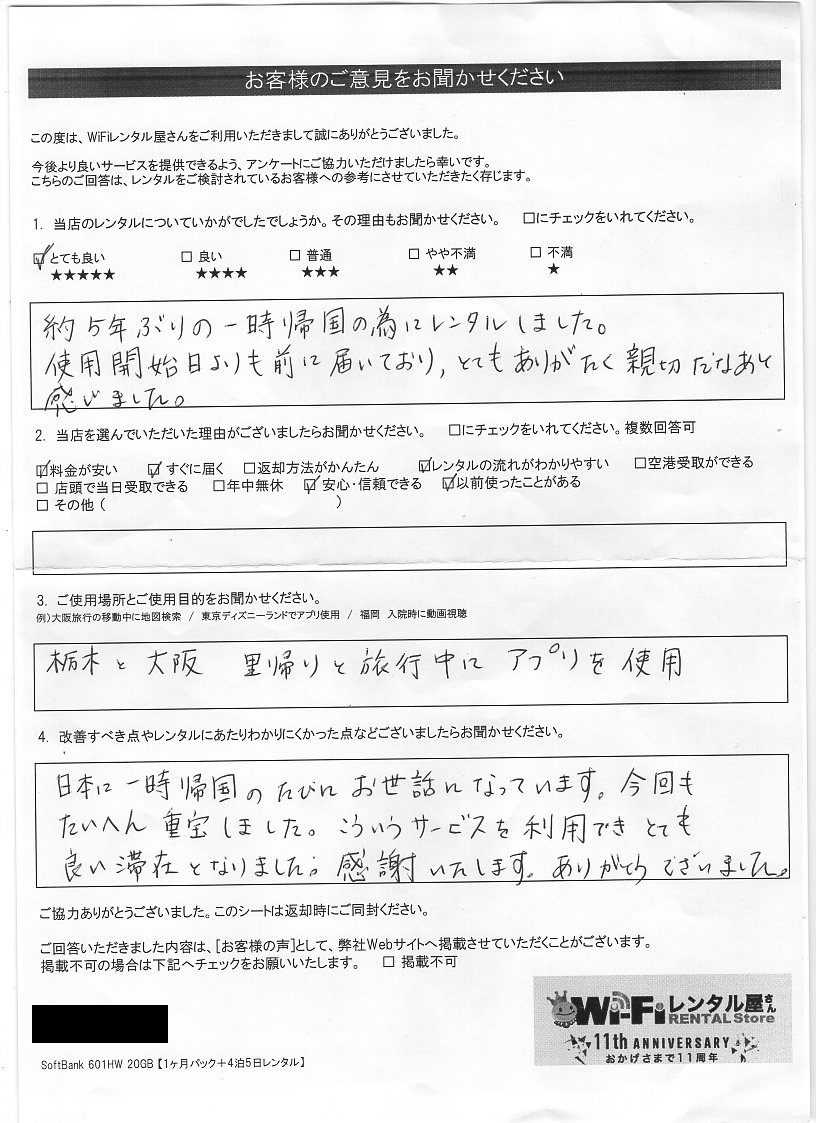 お客様のご意見をお聞かせください
この度は、WiFiレンタル屋さんをご利用いただきまして誠にありがとうございました。
今後より良いサービスを提供できるよう、アンケートにご協力いただけましたら幸いです。
こちらのご回答は、レンタルをご検討されているお客様への参考にさせていただきたく存じます。
1. 当店のレンタルについていかがでしたでしょうか。その理由もお聞かせください。 □にチェックをいれてください。
☑とても良い □ 良い □ 普通 □ やや不満 □ 不満
★★★★★ ★★★★ ★★★ ★★ ★
約5年ぶりの一時帰国の為にレンタルしました。
使用開始日よりも前に届いており、とてもありがたく親切だなあと
感じました。
2. 当店を選んでいただいた理由がございましたらお聞かせください。 □にチェックをいれてください。複数回答可
☑料金が安い ☑すぐに届く □返却方法がかんたん ☑レンタルの流れがわかりやすい □空港受取ができる
□ 店頭で当日受取できる □年中無休 ☑安心・信頼できる ☑以前使ったことがある
□ その他 ( )
3. ご使用場所とご使用目的をお聞かせください。
例)大阪旅行の移動中に地図検索 / 東京ディズニーランドでアプリ使用 / 福岡 入院時に動画視聴
栃木と大阪 里帰りと旅行中にアプリを使用
4. 改善すべき点やレンタルにあたりわかりにくかった点などございましたらお聞かせください。
日本に一時帰国のたびにお世話になっています。今回も
たいへん重宝しました。こういうサービスを利用できとても
良い滞在となりました。感謝いたします。ありがとうございました。
ご協力ありがとうございました。このシートは返却時にご同封ください。
ご回答いただきました内容は、[お客様の声]として、弊社Webサイトへ掲載させていただくことがございます。
掲載不可の場合は下記へチェックをお願いいたします。 □ 掲載不可
Wi-Fiレンタル屋さん
RENTAL Store
11th ANNIVERSARY
おかげさまで11周年
SoftBank 601HW 20GB【1ヶ月パック+4泊5日レンタル】